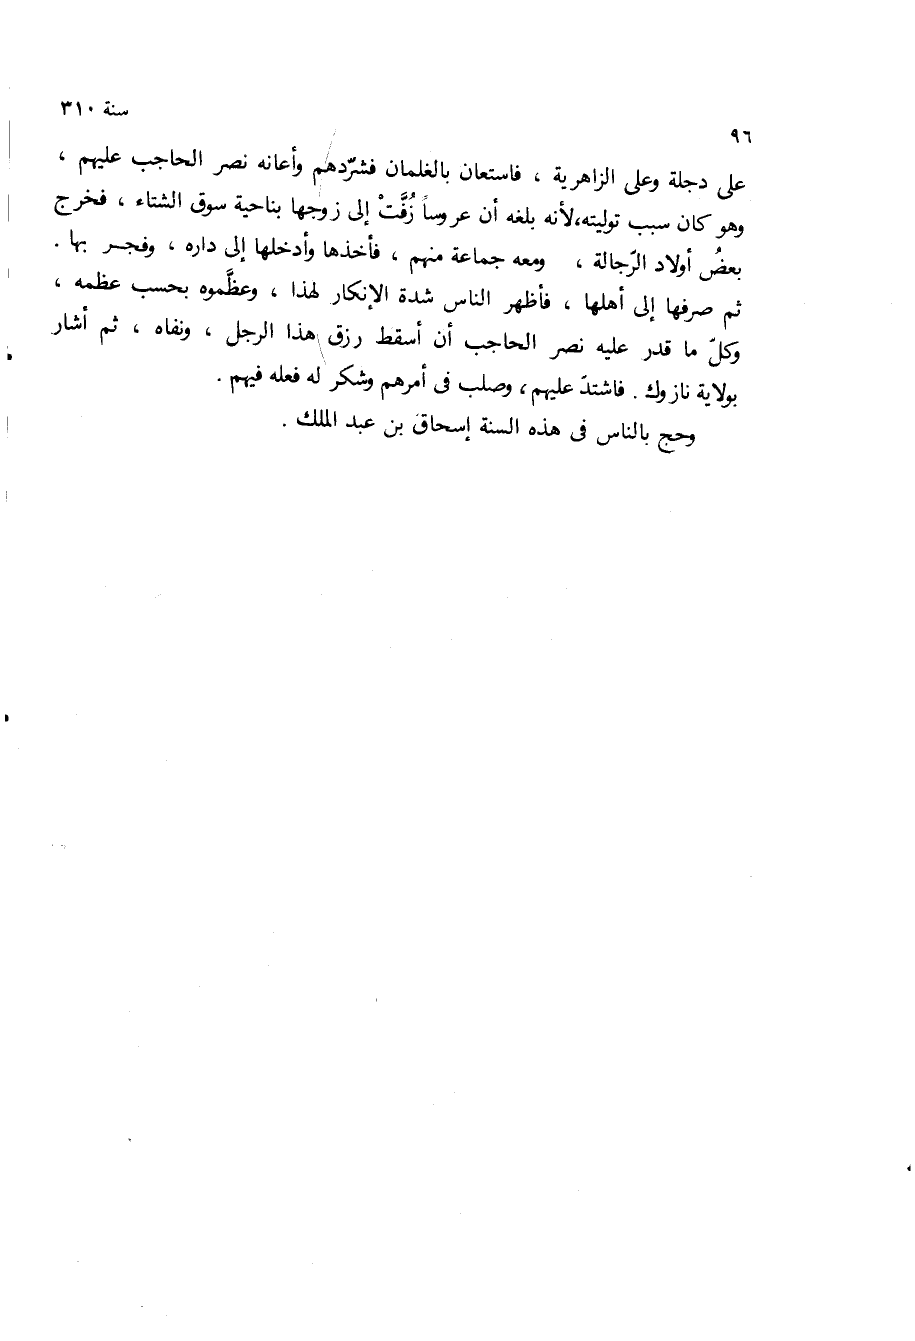 سنة ٣١٠
٩٦
على دجلة وعلى الزاهرية ، فاستعان بالغلمان فشرّدهم وأعانه نصر الحاجب عليهم ،
وهو كان سبب توليته،لأنه بلغه أن عروساً زُفَّتْ إلى زوجها بناحية سوق الشتاء ، فخرج
بعضُ أولاد الرّجالة ، ومعه جماعة منهم ، فأخذها وأدخلها إلى داره ، وفجر بها .
ثم صرفها إلى أهلها ، فأظهر الناس شدة الإنكار لهذا ، وعظَّموه بحسب عظمه ،
وكلّ ما قدر عليه نصر الحاجب أن أسقط رزق هذا الرجل ، ونفاه ، ثم أشار
بولاية نازوك . فاشتدّ عليهم ، وصلب فى أمرهم وشكر له فعله فيهم .
وحج بالناس فى هذه السنة إسحاق بن عبد الملك .